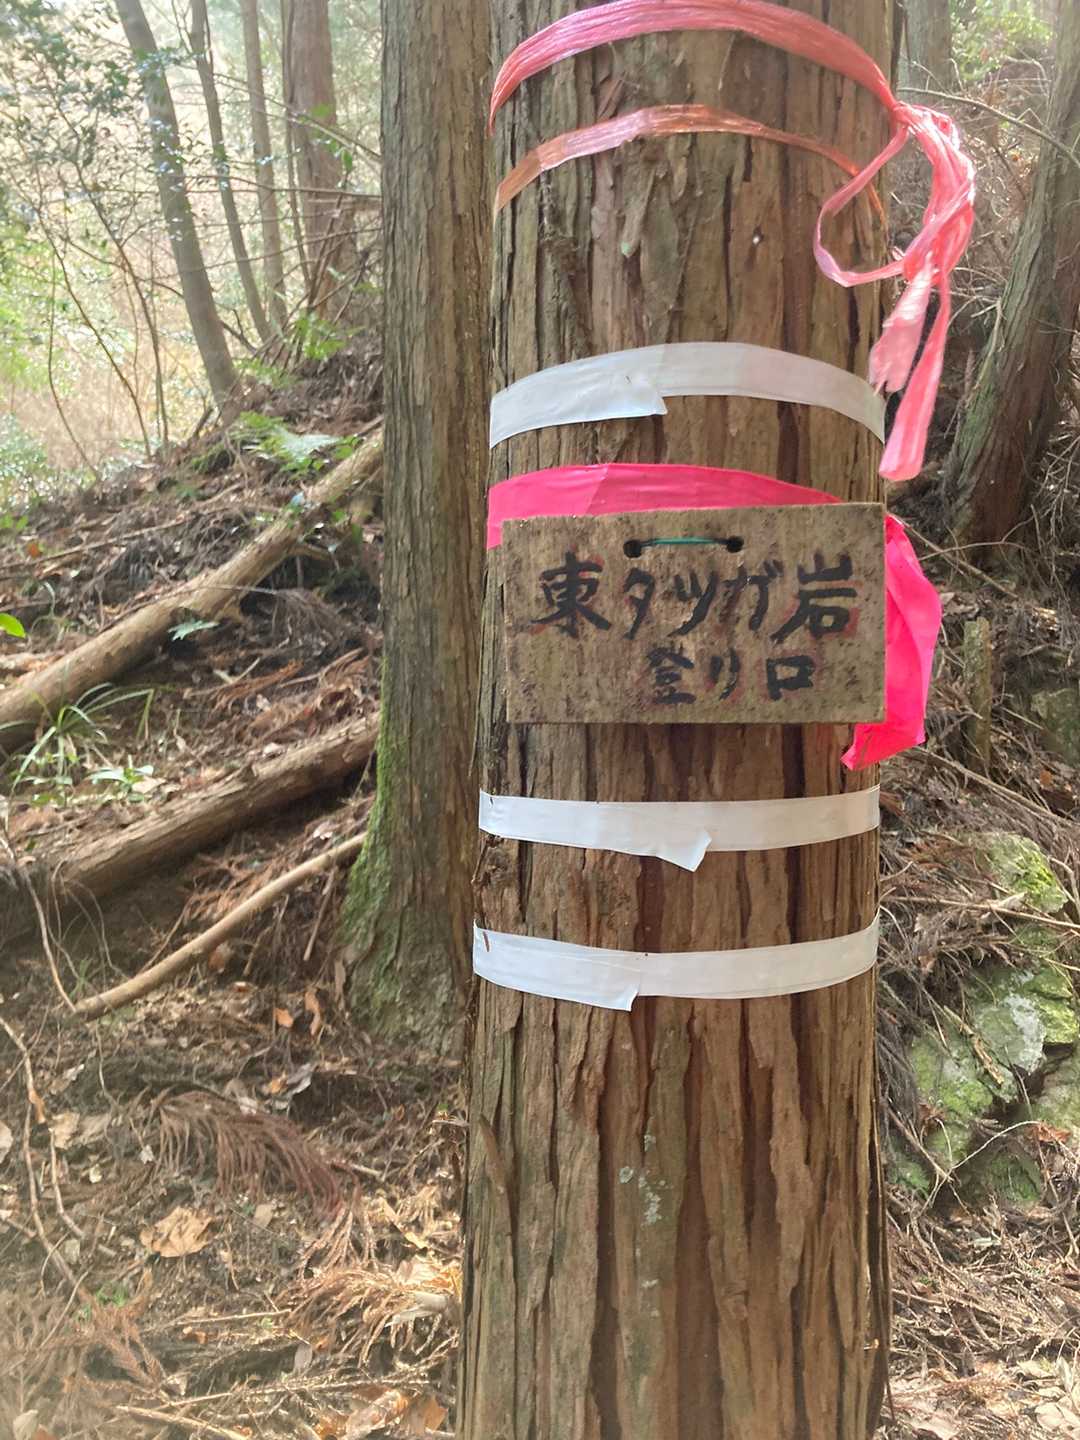 東タツガ岩
登り口